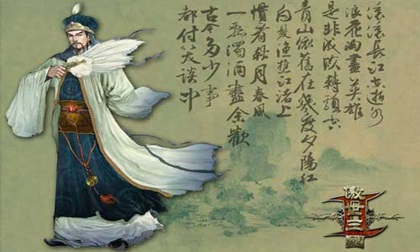 滾滾長江東逝水
浪花淘盡英雄
是非成敗轉頭空
青山依舊在幾度夕陽紅
白髮漁樵江渚上
慣看秋月春風
一瓢濁酒盡余歡
古今多少事
都付笑談中
傲世三國